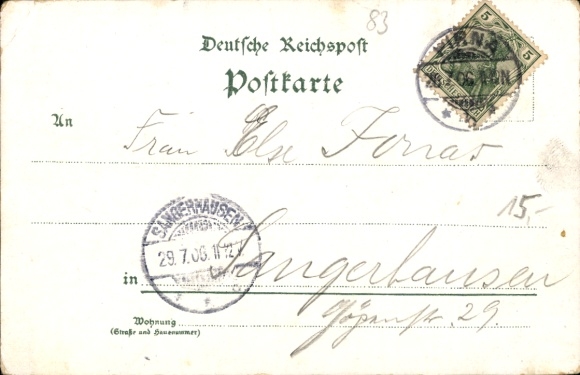 83
Deutsche Reichspost
Postkarte
5 5
PIRNA
An Frau Else
15,-
SANGERHAUSEN
29.7.06. 11-12
in Sangerhausen
29.
Wohnung
(Straße und Hausnummer)